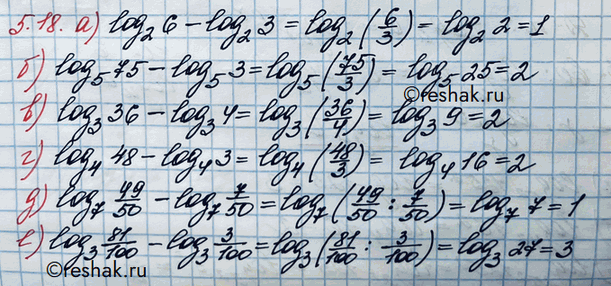 5.18. а) log₂ 6 − log₂ 3 = log₂ (6/3) = log₂ 2 = 1
б) log₅ 75 − log₅ 3 = log₅ (75/3) = log₅ 25 = 2
©reshak.ru
в) log₃ 36 − log₃ 4 = log₃ (36/4) = log₃ 9 = 2
г) log₄ 48 − log₄ 3 = log₄ (48/3) = log₄ 16 = 2
д) log₇ 49/50 − log₇ 7/50 = log₇ (49/50 : 7/50) = log₇ 7 = 1
е) log₃ 81/100 − log₃ 3/100 = log₃ (81/100 : 3/100) = log₃ 27 = 3
©reshak.ru